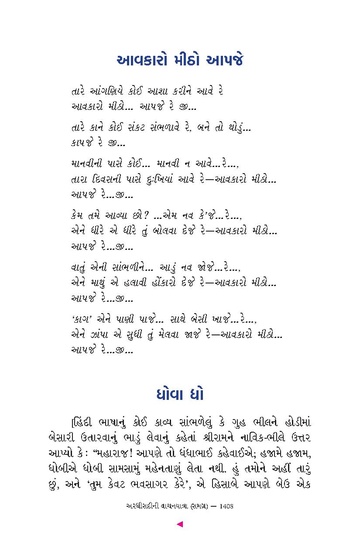 આવકારો મીઠો આપજે
તારે આંગણિયે કોઈ આશા કરીને આવે રે
આવકારો મીઠો... આપજે રે જી...
તારે કાને કોઈ સંકટ સંભળાવે રે. બને તો થોડું...
કાપજે રે જી...
માનવીની પાસે કોઈ... માનવી ન આવે...રે...,
તારા દિવસની પાસે દુઃખિયાં આવે રે—આવકારો મીઠો...
આપજે રે...જી...
કેમ તમે આવ્યા છો? ...એમ નવ કે'જે...રે...,
એને ધીરે એ ધીરે તું બોલવા દેજે રે—આવકારો મીઠો...
આપજે રે...જી...
વાતું એની સાંભળીને... આડું નવ જોજે...રે...,
એને માથું એ હલાવી હોંકારો દેજે રે—આવકારો મીઠો...
આપજે રે...જી...
'કાગ' એને પાણી પાજે... સાથે બેસી ખાજે...રે...,
એને ઝાંપા એ સુધી તું મેલવા જાજે રે—આવકારો મીઠો...
આપજે રે...જી...
ધોવા દ્યો
[હિંદી ભાષાનું કોઈ કાવ્ય સાંભળેલું કે ગુહ ભીલને હોડીમાં
બેસારી ઉતારવાનું ભાડું લેવાનું કહેતાં શ્રીરામને નાવિક-ભીલે ઉત્તર
આપ્યો કે : "મહારાજ! આપણે તો ધંધાભાઈ કહેવાઈએ; હજામે હજામ,
ધોબીએ ધોબી સામસામું મહેનતાણું લેતા નથી. હું તમોને અહીં તારું
છું, અને 'તુમ કેવટ ભવસાગર કેરે', એ હિસાબે આપણે બેઉ એક
અરધીસદીની વાચનયાત્રા (સમગ્ર) — 1408